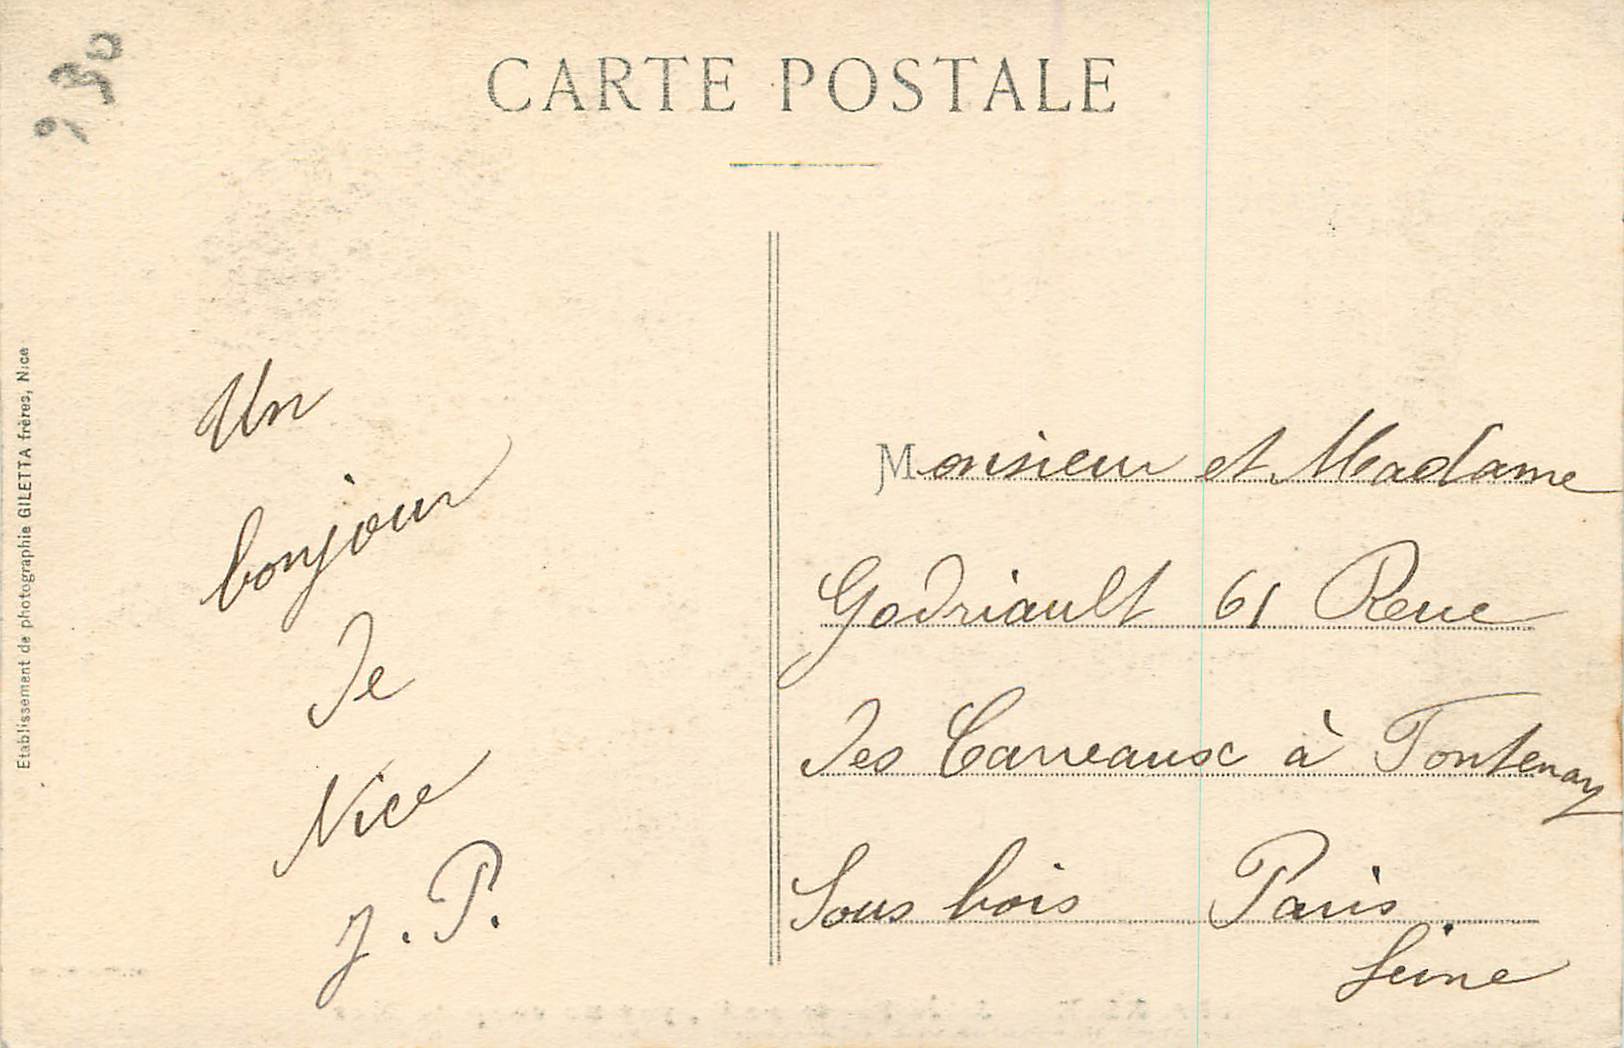 CARTE POSTALE
Un
bonjour
de
Nice
J. P.
Monsieur et Madame
Godriault 61 Reue
des Carreaux à Fontenay
Sous bois Paris
Seine
Etablissement de photographie GILETTA frères, Nice